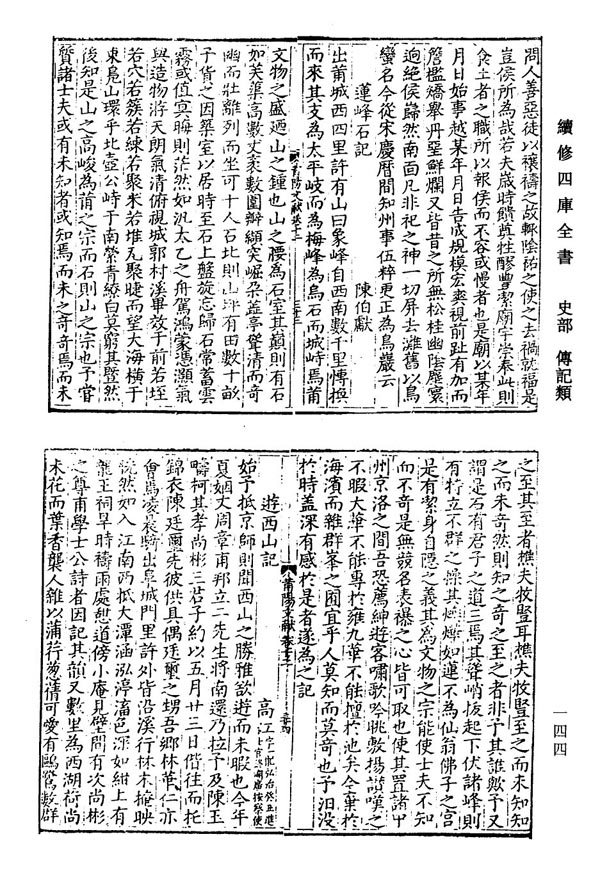 續修四庫全書　史部　傳記類
一四四
問人善惡徒以禳禱之故輒陰祐之使之去禍就福是
豈侯所為哉若夫歲時饋尊牲醪豐潔廟宇崇奉此則
食土者之職所以報侯而不容或慢者也是廟以某年
月日始事越某年月日告成規模宏爽視前趾有加而
簷楹矯舉丹堊鮮爛又皆昔之所無松桂幽陰塵寰
迥絕侯巋然南面凡非祀之神一切屏去灘舊以烏
蠻名今從宋慶曆間知州事伍粹更正為烏巖云
蓮峰石記
陳伯獻
出莆城西四里許有山曰象峰自西南數千里慱換
而來其支為太平岐而為梅峰為烏石而城峙焉莆
文物之盛迺山之鍾也山之腰為石室其巔則有石
如芙蕖高數丈袤數圍瓣纈突崛朶蓋亭聳清而奇
幽而壯離列而坐可十人石北則山坪有田數十畝
子貨之因築室以居時至石上盤旋忘歸石常蓄雲
霧或值冥晦則茫然如汎太乙之舟駕鴻蒙馮灝氣
與造物將天朗氣清俯視城郭村溪畢效于前若垤
若穴若簇若練若聚米若堆瓦聚睫而望大海橫于
東鳧山環乎北壺公峙于南縈青繚白莫窮其暨然
後知是山之高峻為莆之宗而石則山之宗也予嘗
質諸士夫或有未知者或知焉而未之奇奇焉而未
莆陽文獻卷十二
之至其至者樵夫牧豎耳樵夫牧豎至之而未知知
之而未奇然則知之奇之至之者非予其誰歟予又
謂是石有君子之道三焉其聳峭拔起下伏諸峰則
有特立不群之操其燁燁如蓮不為仙翁佛子之宫
是有潔身自隱之義其為文物之宗能使士夫不知
而不奇是無競名表襮之心皆可取也使其置諸中
州京洛之間吾恐薦紳遊客嘯歌吟眺敷揚讚嘆之
不暇大華不能專於雍九華不能擅於池矣今棄於
海濱而雜群峯之囿宜乎人莫知而莫奇也予汨没
於時蓋深有感於是者遂為之記
遊西山記
高江
始予抵京師則聞西山之勝雅欲遊而未暇也今年
夏姻丈周章甫邦立二先生將南還乃拉予及陳玉
疇柯其孝尚彬三君子約以五月廿三日偕往而托
錦衣陳廷璽先彼供具偶廷璽之甥吾鄉林蓽仁亦
會焉凌晨騎出阜城門里許外皆沿溪行林木掩映
恍然如入江南西抵大潭涵泓渟滀色深如紺上有
龍王祠旱時禱雨處憇道傍小庵見壁間有次尚彬
之尊甫學士公詩者因記其韻又數里為西湖荷尚
未花而葉香襲人雜以蒲荇蓊蒨可愛有鷗鷺數群
莆陽文獻卷十二